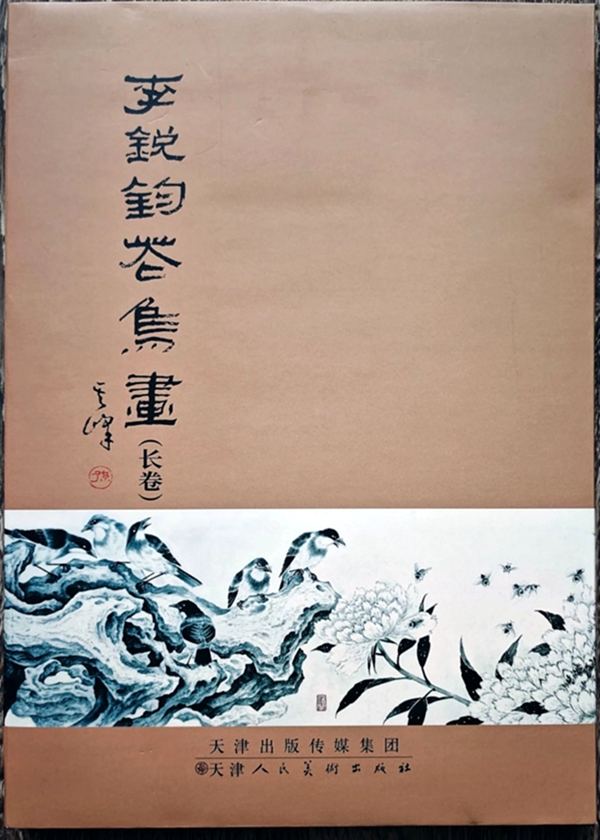 李鋭鈞花鳥畫(长卷)
其峰
天津出版传媒集团
天津人民美術出版社